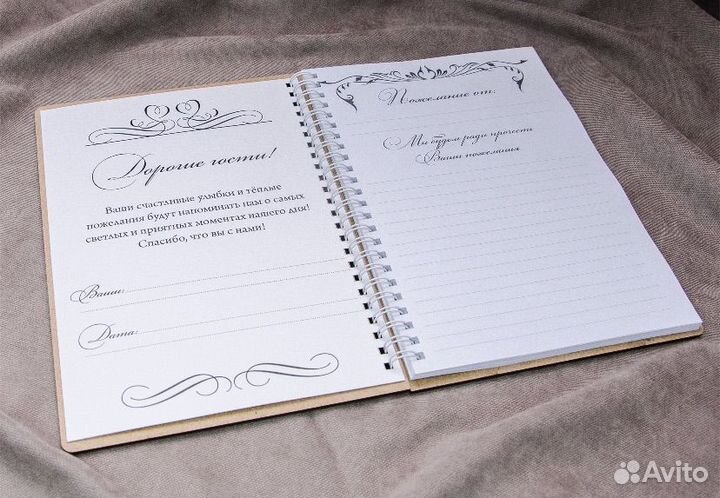 Дорогие гости!
Ваши счастливые улыбки и тёплые
пожелания будут напоминать нам о самых
светлых и приятных моментах нашего дня!
Спасибо, что вы с нами!
Ваши:
Дата:
Пожелание от:
Мы будем рады прочесть
Ваши пожелания
Avito